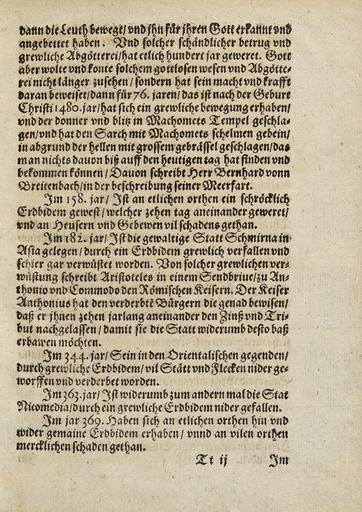 dann die Leuth bewegt/ vnd jhn für jhren Gott erkannt vnd
angebettet haben. Vnd solcher schändlicher betrug vnd
grewliche Abgötterei/hat etlich hundert jar geweret. Gott
aber wolte vnd konte solchem gottlosen wesen vnd Abgötte-
rei nicht länger zusehen/ sondern hat sein macht vnd krafft
daran beweiset/dann für 76. jaren/das ist nach der Geburt
Christi 1480.jar/hat sich ein grewliche bewegung erhaben/
vnd der donner vnd blitz in Machomets Tempel geschla-
gen/vnd hat den Sarch mit Machomets schelmen gebein/
in abgrund der hellen mit grossem gebrässel geschlagen/das
man nichts dauon biß auff den heutigen tag hat finden vnd
bekommen können/ Dauon schreibt Herr Bernhard vonn
Breitenbach/in der beschreibung seiner Meerfart.
Im 158. jar/ Ist an etlichen orthen ein schröcklich
Erdbidem gewest/welcher zehen tag aneinander geweret/
vnd an Heusern vnd Gebewen vil schadens gethan.
Im 182. jar/ Ist die gewaltige Statt Schmirna in
Asia gelegen/ durch ein Erdbidem grewlich verfallen vnd
schier gar verwüstet worden. Von solcher grewlichen ver-
wüstung schreibt Aristoteles in einem Sendbrieff/zu An-
thonio vnd Commodo den Römischen Keisern. Der Keiser
Anthonius hat den verderbtē Bürgern die genad bewisen/
daß er jhnen zehen jar lang aneinander den Zinß vnd Tri-
but nachgelassen/ damit sie die Statt widerumb desto baß
erbawen möchten.
Im 344. jar/ Sein in den Orientalischen gegenden/
durch grewliche Erdbidem/ vil Stätt vnd Flecken nider ge-
worffen vnd verderbet worden.
Im 363. jar/ Ist widerumb zum andern mal die Stat
Nicomedia/durch ein grewliche Erdbidem nider gefallen.
Im jar 369. Haben sich an etlichen orthen hin vnd
wider gemaine Erdbidem erhaben/ vnnd an vilen orthen
mercklichen schaden gethan.
Tt ij Im